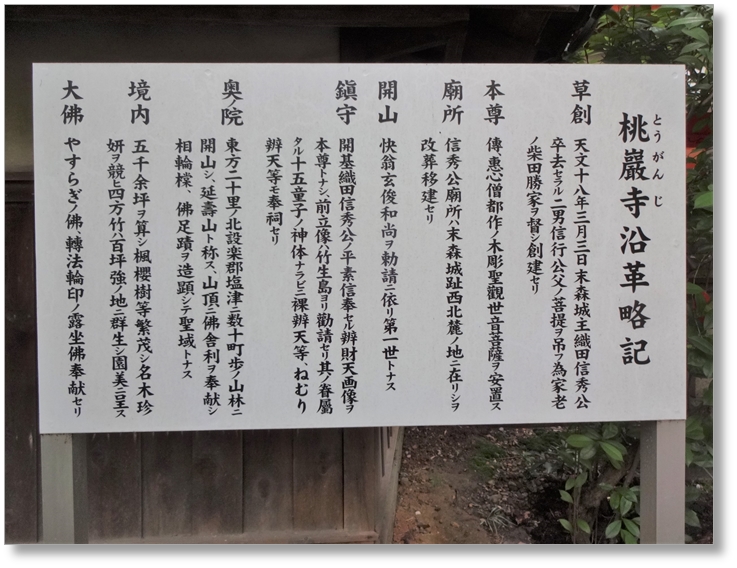 とうがんじ
桃巖寺沿革略記
草創 天文十八年三月三日末森城主織田信秀公
卒去セラル二男信行公父ノ菩提ヲ吊フ為家老
ノ柴田勝家ヲ督シ創建セリ
本尊 傳惠心僧都作ノ木彫聖觀世音菩薩ヲ安置ス
廟所 信秀公廟所ハ末森城趾西北麓ノ地ニ在リシヲ
改葬移建セリ
開山 快翁玄俊和尚ヲ勅請ニ依リ第一世トナス
鎮守 開基織田信秀公ノ平素信奉セル辨財天画像ヲ
本尊トナシ、前立像ハ竹生島ヨリ勸請セリ其ノ眷屬
タル十五童子ノ神体ナラビニ裸辨天等、ねむり
辨天等モ奉祠セリ
奥ノ院 東方二十里ノ北設楽郡塩津ニ数十町歩ノ山林ニ
開山シ、延壽山ト称ス、山頂ニ佛舎利ヲ奉献シ
相輪樘、佛足蹟ヲ造顕シテ聖域トナス
境内 五千余坪ヲ算シ楓櫻樹等繁茂シ名木珍
妍ヲ競ヒ四方竹ハ百坪強ノ地ニ群生シ園美ニ呈ス
大佛 やすらぎノ佛、轉法輪印ノ露坐佛奉献セリ